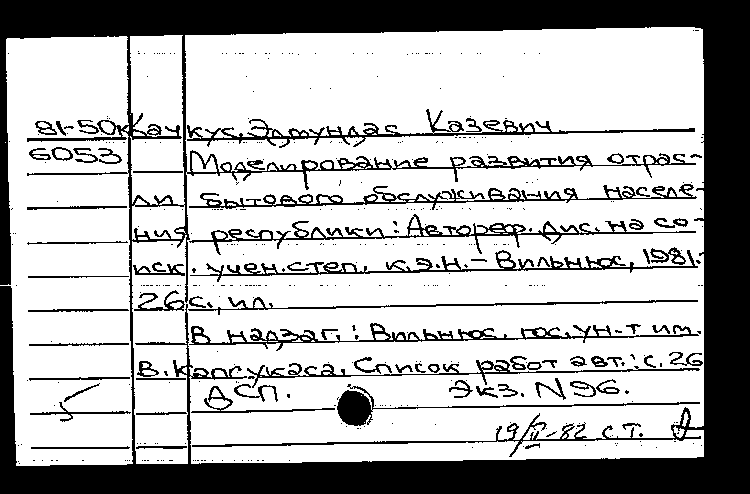 81-50к Качкус, Эдмундас Казевич.
6053 Моделирование развития отрас-
ли бытового обслуживания населе-
ния республики : Автореф. дис. на со-
иск. учен. степ. к.э.н. - Вильнюс, 1981.-
26с., ил.
В надзаг. : Вильнюс. гос. ун-т им.
В. Капсукаса. Список работ авт.: с. 26
ДСП. Экз. N96.
5
19/II-82 с т.